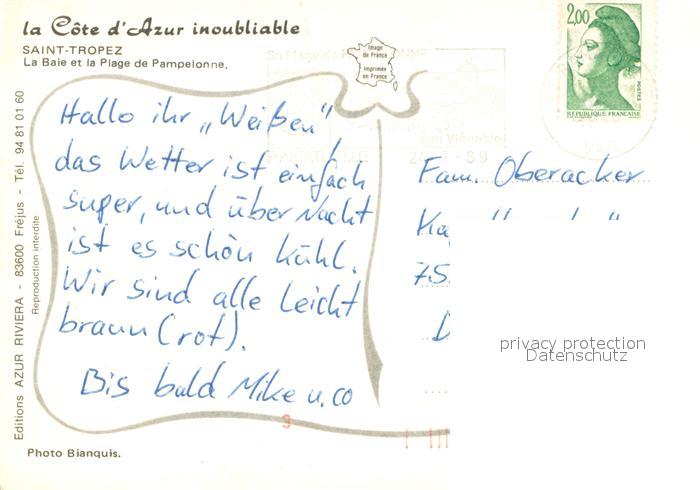 la Côte d'Azur inoubliable
SAINT-TROPEZ
La Baie et la Plage de Pampelonne.
Image
de France
Imprimée
en France
2,00
POSTES
REPUBLIQUE FRANÇAISE
Hallo ihr „Weißen",
das Wetter ist einfach
super, und über Nacht
ist es schön kühl.
Wir sind alle leicht
braun (rot).
Bis bald Mike u. co
Fam. Oberacker
75
privacy protection
Datenschutz
Editions AZUR RIVIERA - 83600 Fréjus - Tél. 94 81 01 60
Reproduction interdite
9
Photo Bianquis.